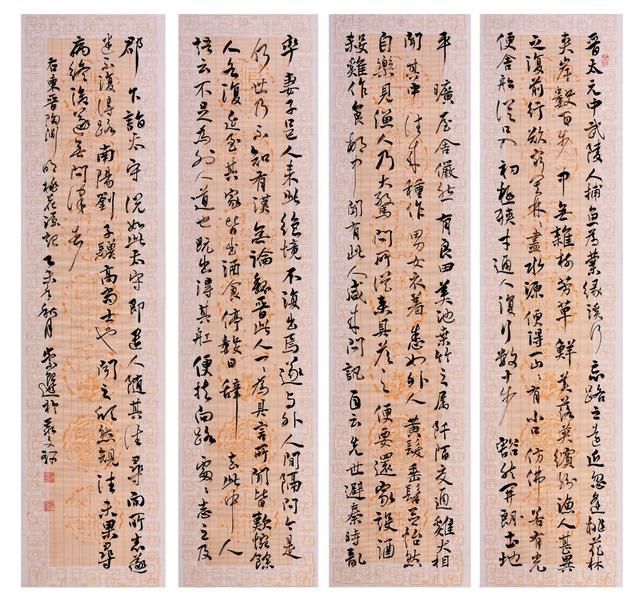 晉太元中武陵人捕魚為業緣溪行忘路之遠近忽逢桃花林
夾岸數百步中無雜樹芳草鮮美落英繽紛漁人甚異
之復前行欲窮其林盡水源便得一山有小口仿佛若有光
便舍船從口入初極狹才通人復行數十步豁然開朗土地
平曠屋舍儼然有良田美池桑竹之屬阡陌交通雞犬相
聞其中往來種作男女衣著悉如外人黃髮垂髫並怡然
自樂見漁人乃大驚問所從來具答之便要還家設酒
殺雞作食村中聞有此人咸來問訊自云先世避秦時亂
率妻子邑人來此絕境不復出焉遂與外人間隔問今是
何世乃不知有漢無論魏晉此人一一為具言所聞皆歎惋餘
人各復延至其家皆出酒食停數日辭去此中人
語云不足為外人道也既出得其船便扶向路處處志之及
郡下詣太守說如此太守即遣人隨其往尋向所志遂
迷不復得路南陽劉子驥高尚士也聞之欣然規往未果尋
病終後遂無問津者
右東晉陶淵明桃花源記乙未年秋月